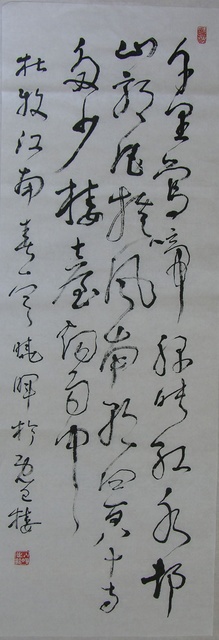 千里鶯啼綠映紅水邨
山郭酒旗風南朝四百八十寺
多少樓臺烟雨中
杜牧江南春 曉暉於 樓